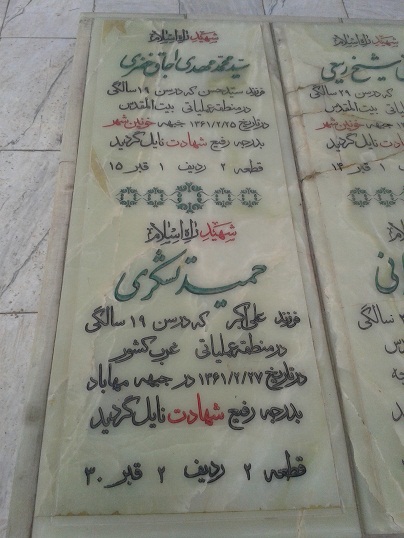 شهید راه اسلام
سید محمد مهدی اجاق نفری
فرزند سید حسن که درسن ۱۹ سالگی
در منطقه عملیاتی بیت المقدس
در تاریخ ۱۳۶۱/۲/۲۵ جبهه خونین شهر
بدرجه رفیع شهادت نایل گردید
قطعه ۲ ردیف ۱ قبر ۱۵
شهید راه اسلام
حمید تشگری
فرزند علی اکبر که درسن ۱۹ سالگی
در منطقه عملیاتی غرب کشور
در تاریخ ۱۳۶۱/۲/۲۷ در جبهه مهاباد
بدرجه رفیع شهادت نایل گردید
قطعه ۲ ردیف ۲ قبر ۳۰
شهید راه اسلام
شیخ ربیعی
که درسن ۲۹ سالگی
عملیاتی بیت المقدس
جبهه خونین شهر
شهادت نایل گردید
۱ قبر ۱۴
شهید راه
سالگی